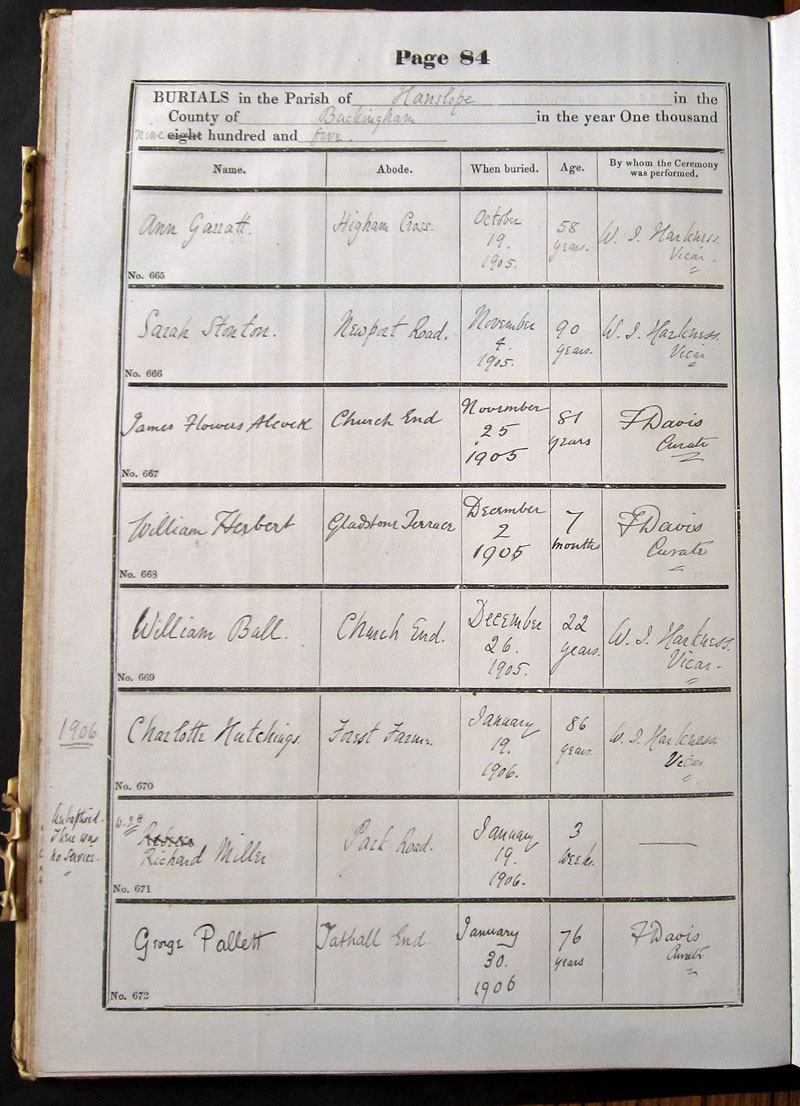 Page 84
BURIALS in the Parish of Hanslope in the
County of Buckingham in the year One thousand
nine eight hundred and five.
Name. Abode. When buried. Age. By whom the Ceremony
was performed.
Ann Garratt. Higham Cross. October
19.
1905. 58
years. W. J. Harkness.
Vicar.
No. 665
Sarah Stonton. Newport Road. November
4.
1905. 90
years. W. J. Harkness.
Vicar
No. 666
James Flowers Alcock Church End November
25
1905 81
years F Davis
Curate
No. 667
William Herbert Gladstone Terrace December
2
1905 7
months F Davis
Curate
No. 668
William Ball. Church End. December
26.
1905. 22
years. W. J. Harkness.
Vicar.
No. 669
1906
Charlotte Hutchings. Forest Farm. January
19.
1906. 86
years. W. J. Harkness
Vicar
No. 670
Unbaptised.
There was
no service.
W. J. H
Richard Miller Park Road. January
19.
1906. 3
weeks.
No. 671
George Pallett Tathall End. January
30.
1906 76
years F Davis
Curate
No. 672